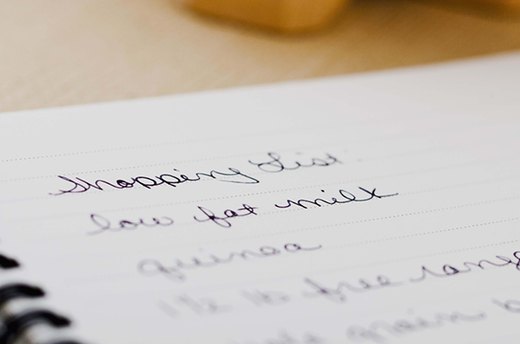 Shopping List:
low fat milk
quinoa
1½ lb free rang
grain